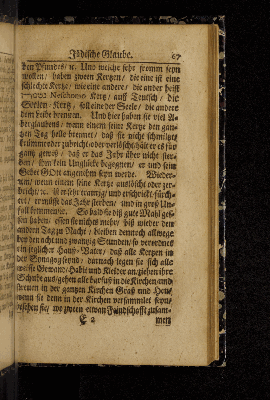 Jüdische Glaube. 67
den Pfundes/ ꝛc. Und welche sehr fromm seyn
wollen/ haben zween Kertzen/ die eine ist eine
schlechte Kertz/ wie eine andere/ die ander heist
Neschomos Kertz/ auff Teutsch/ die
Seelen-Kertz/ soll eine der Seele/ die andere
dem Leibe brennen. Und hier haben sie viel A-
berglaubens/ wann einem seine Kertze den gan-
tzen Tag helle brennet/ daß sie nicht schmeltzt/
krümmet oder zubricht/ oder verlöscht/ hält er es für
gantz gewiß/ daß er das Jahr über nicht ster-
ben/ ihm kein Unglück begegnen/ und sein
Gebet GOtt angenehm seyn werde. Wieder-
um/ wenn einem seine Kertze auslöscht oder zer-
bricht/ ꝛc. ist er sehr traurig/ und erschrickt/ fürch-
tet/ er müsse das Jahr sterben/ und in groß Un-
fall kommen/ ꝛc. So bald sie diß gute Mahl ges-
sen haben/ essen sie nichts mehr/ biß wieder den
andern Tag zu Nacht/ bleiben dennoch allwege
bey den acht und zwantzig Stunden/ so verordnet
ein jeglicher Hauß-Vater/ daß alle Kertzen in
der Synagog seynd/ darnach legen sie sich alle
weisse Gewand/ Habit und Kleider an/ ziehen ihre
Schuhe aus/ gehen alle barfuß in die Kirchen/ und
streuen in der gantzen Kirchen Graß und Heu/
wenn sie denn in der Kirchen versammlet seyn/
sehen sie/ wo zween etwan Feindschafft zusam-
E 2 men